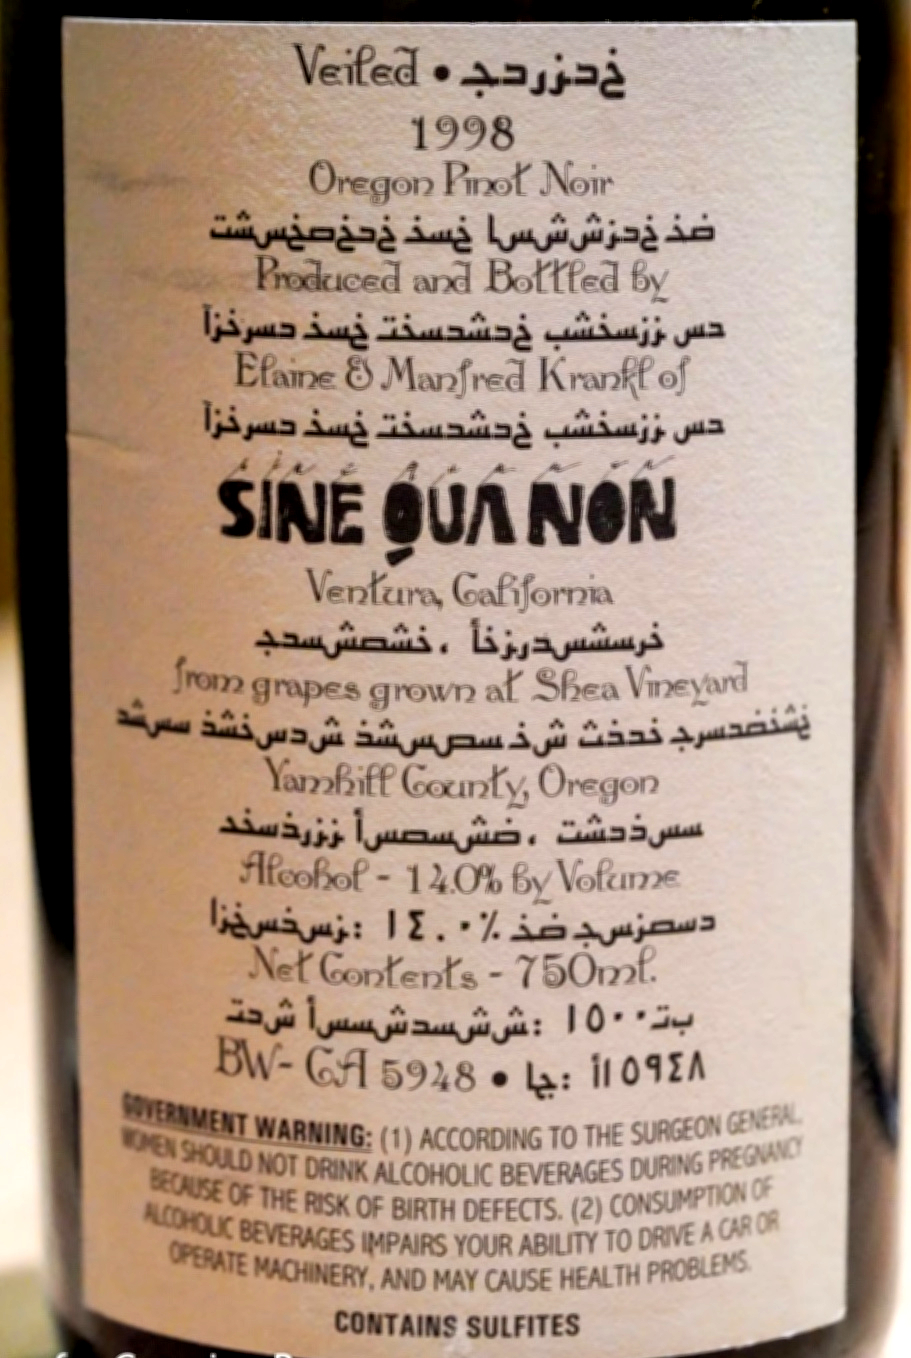 Veiled • خدزردج
1998
Oregon Pinot Noir
ضذ خدزششسا خسذ خدخصخسشت
Produced and Bottled by
دس ززسخشب خدشدسخت خسخ دسرخزآ
Elaine & Manfred Krankl of
دس ززسخشب خدشدسخت خسخ دسرخزآ
SINE QUA NON
Ventura, California
خرسشسدرزخأ ، خشصشسدج
from grapes grown at Shea Vineyard
Yamhill County, Oregon
سسذدشت ، ضشسصسأ ززرذسخد
Alcohol - 14.0% by Volume
دسصزسج ضذ ١٤.٠٪ :زسخسخزا
Net Contents - 750ml.
بت١٥٠٠ :ششسدشسسأ شدت
BW- CA 5948 • جا: أا٥٩٤٨
GOVERNMENT WARNING: (1) ACCORDING TO THE SURGEON GENERAL,
WOMEN SHOULD NOT DRINK ALCOHOLIC BEVERAGES DURING PREGNANCY
BECAUSE OF THE RISK OF BIRTH DEFECTS. (2) CONSUMPTION OF
ALCOHOLIC BEVERAGES IMPAIRS YOUR ABILITY TO DRIVE A CAR OR
OPERATE MACHINERY, AND MAY CAUSE HEALTH PROBLEMS.
CONTAINS SULFITES